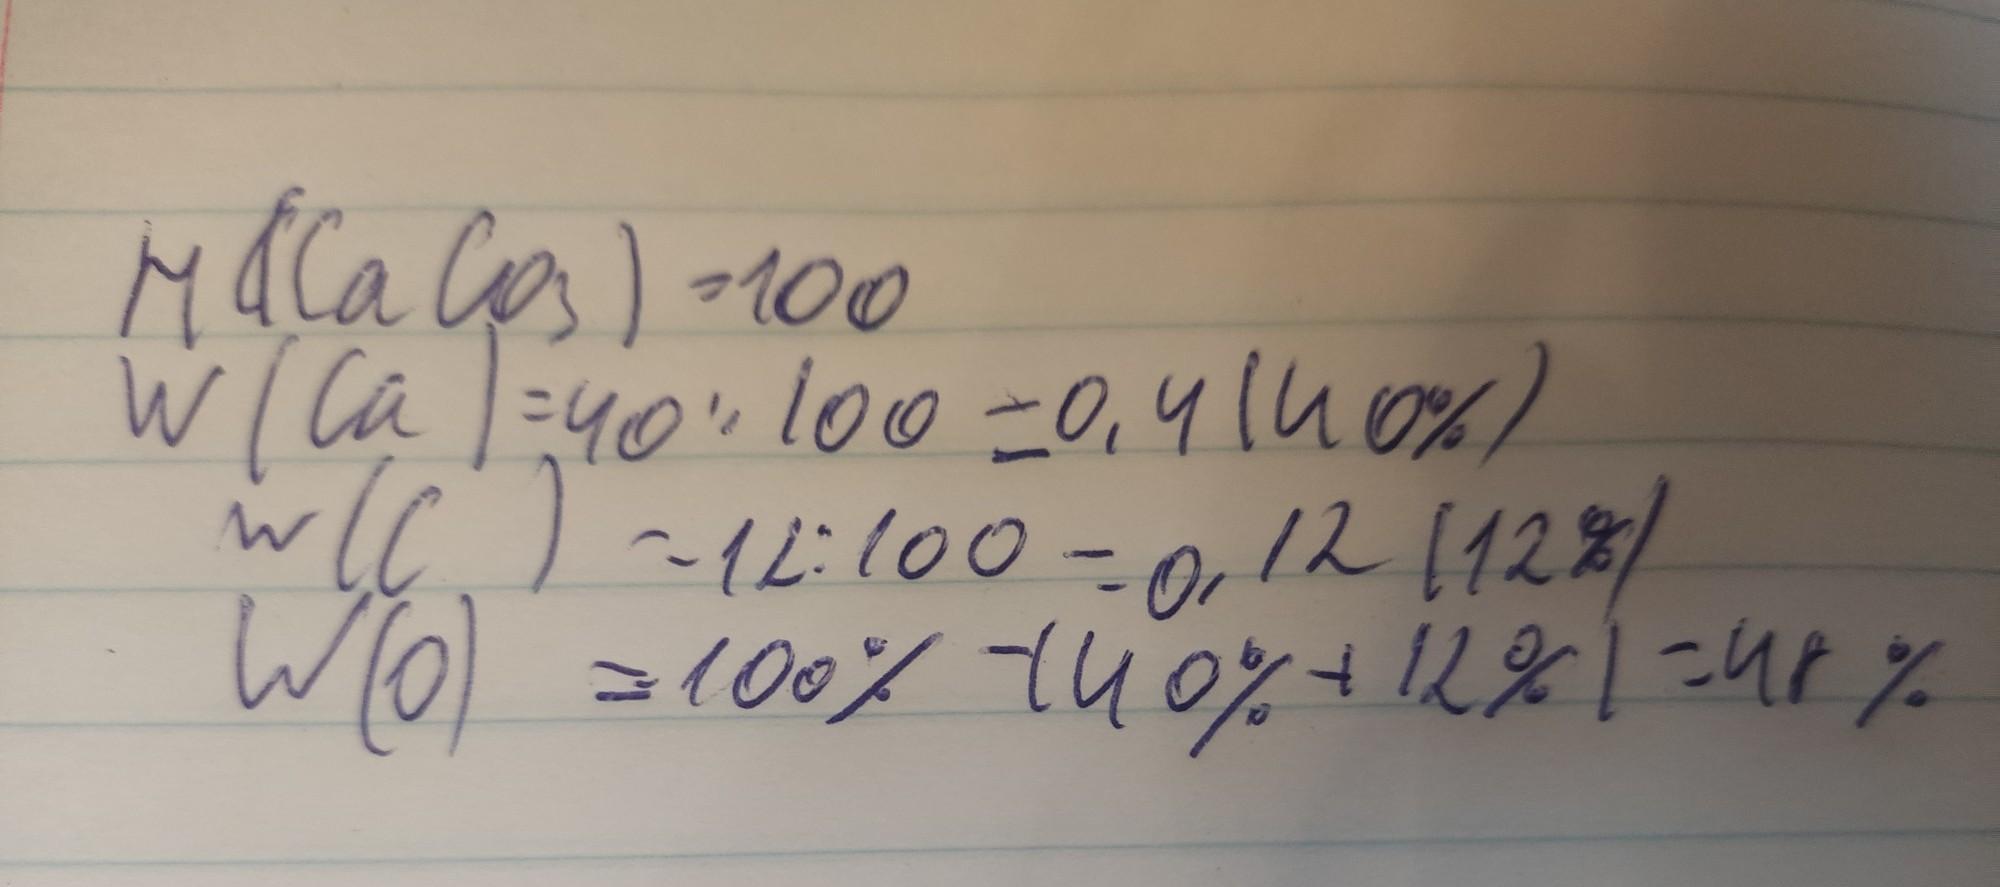 M(CaCO3) =100
W(Ca)=40:100=0,4(40%)
w(C) =12:100=0,12(12%)
W(O) =100%-(40%+12%)=48%